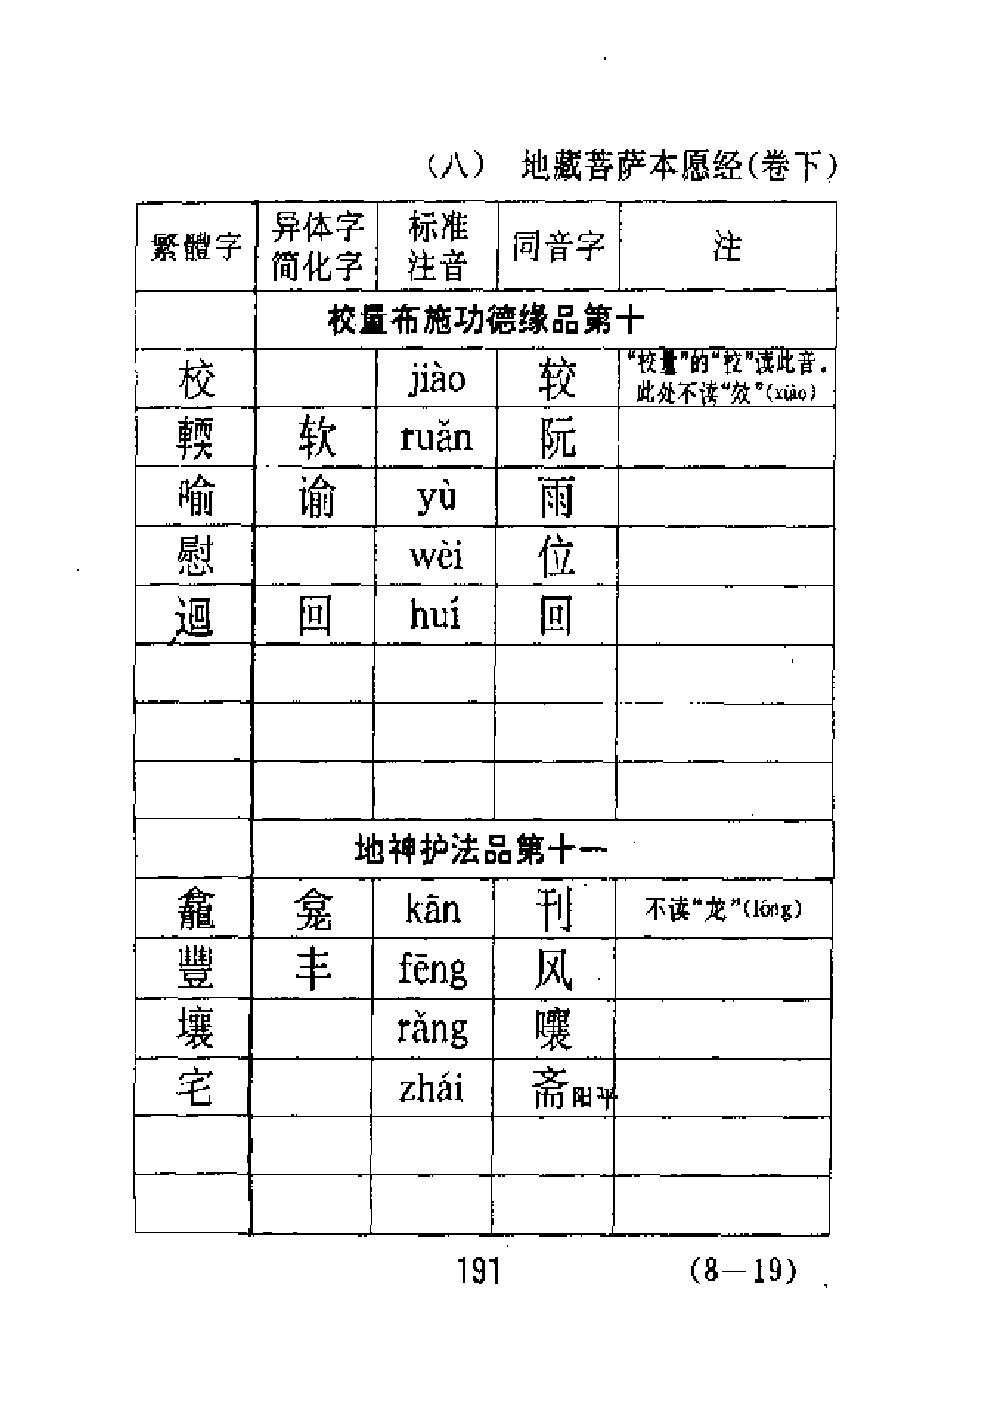 (八) 地藏菩萨本愿经(卷下)
繁體字 异体字 简化字 标准注音 同音字 注
校量布施功德缘品第十
校 jiào 较 “校量”的“校”读此音。此处不读“效”(xiào)
輭 软 ruǎn 阮
喻 谕 yù 雨
慰 wèi 位
迴 回 huí 回
地神护法品第十一
龕 龛 kān 刊 不读“龙”(lóng)
豐 丰 fēng 风
壤 rǎng 嚷
宅 zhái 斋阳平
191 (8—19)